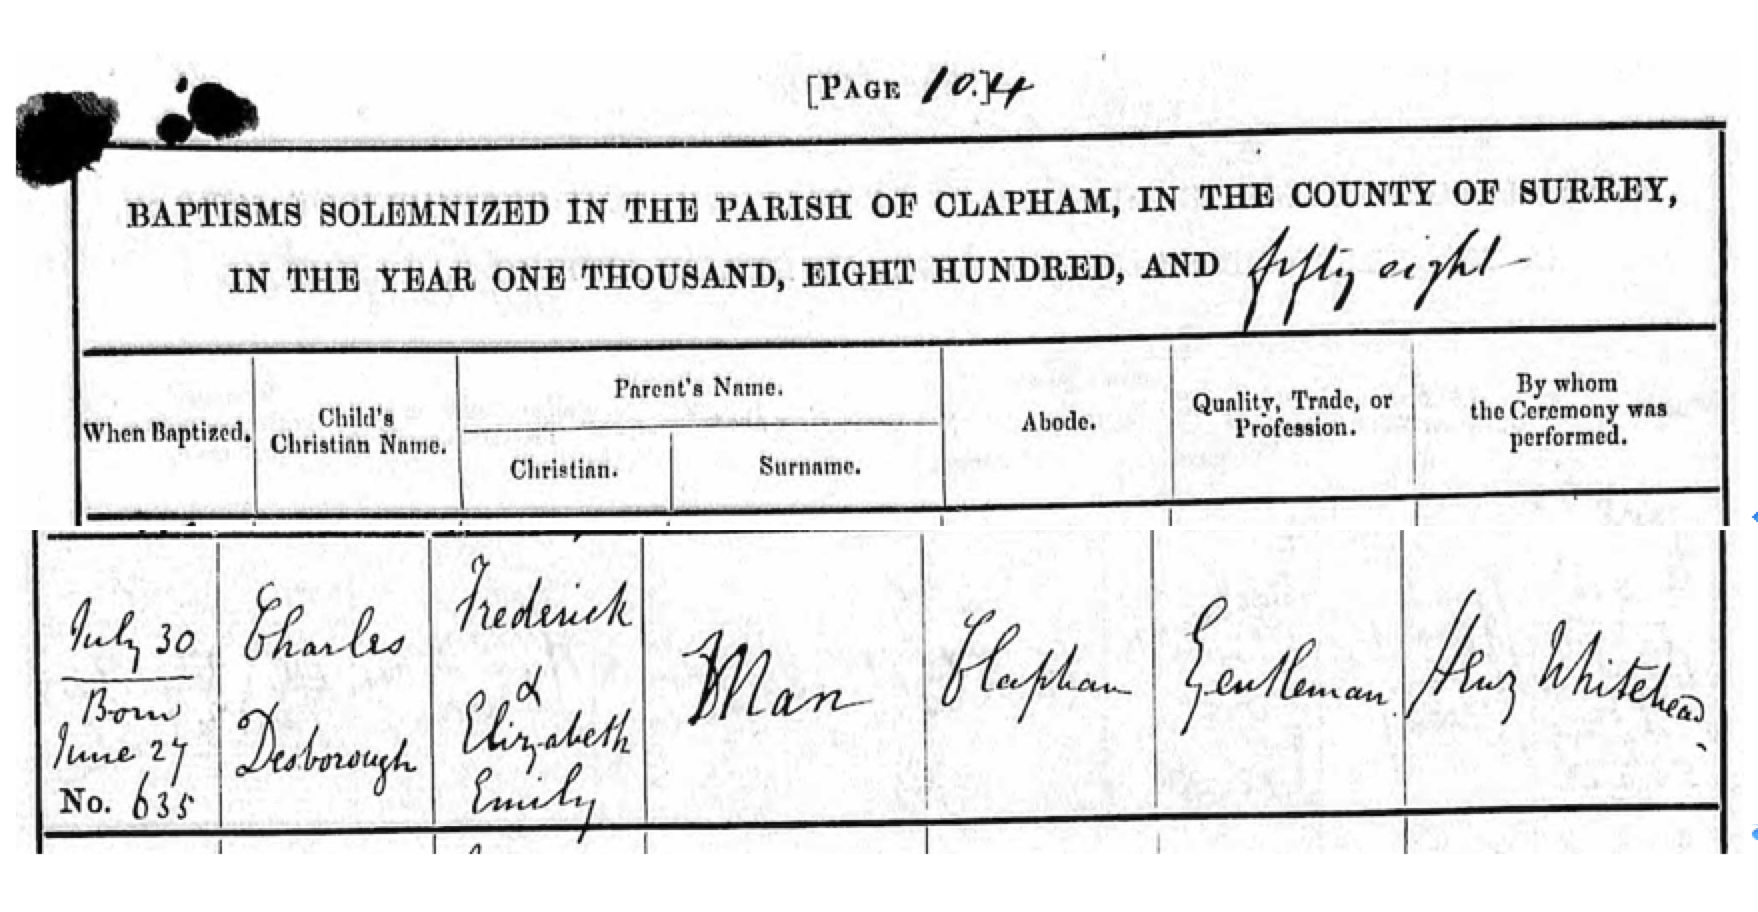 [PAGE 10.]4
BAPTISMS SOLEMNIZED IN THE PARISH OF CLAPHAM, IN THE COUNTY OF SURREY,
IN THE YEAR ONE THOUSAND, EIGHT HUNDRED, AND fifty eight
When Baptized.
Child's
Christian Name.
Parent's Name.
Christian.
Surname.
Abode.
Quality, Trade, or
Profession.
By whom
the Ceremony was
performed.
July 30
Born
June 27
No. 635
Charles
Desborough
Frederick
&
Elizabeth
Emily
Man
Clapham
Gentleman
Henry Whitehead